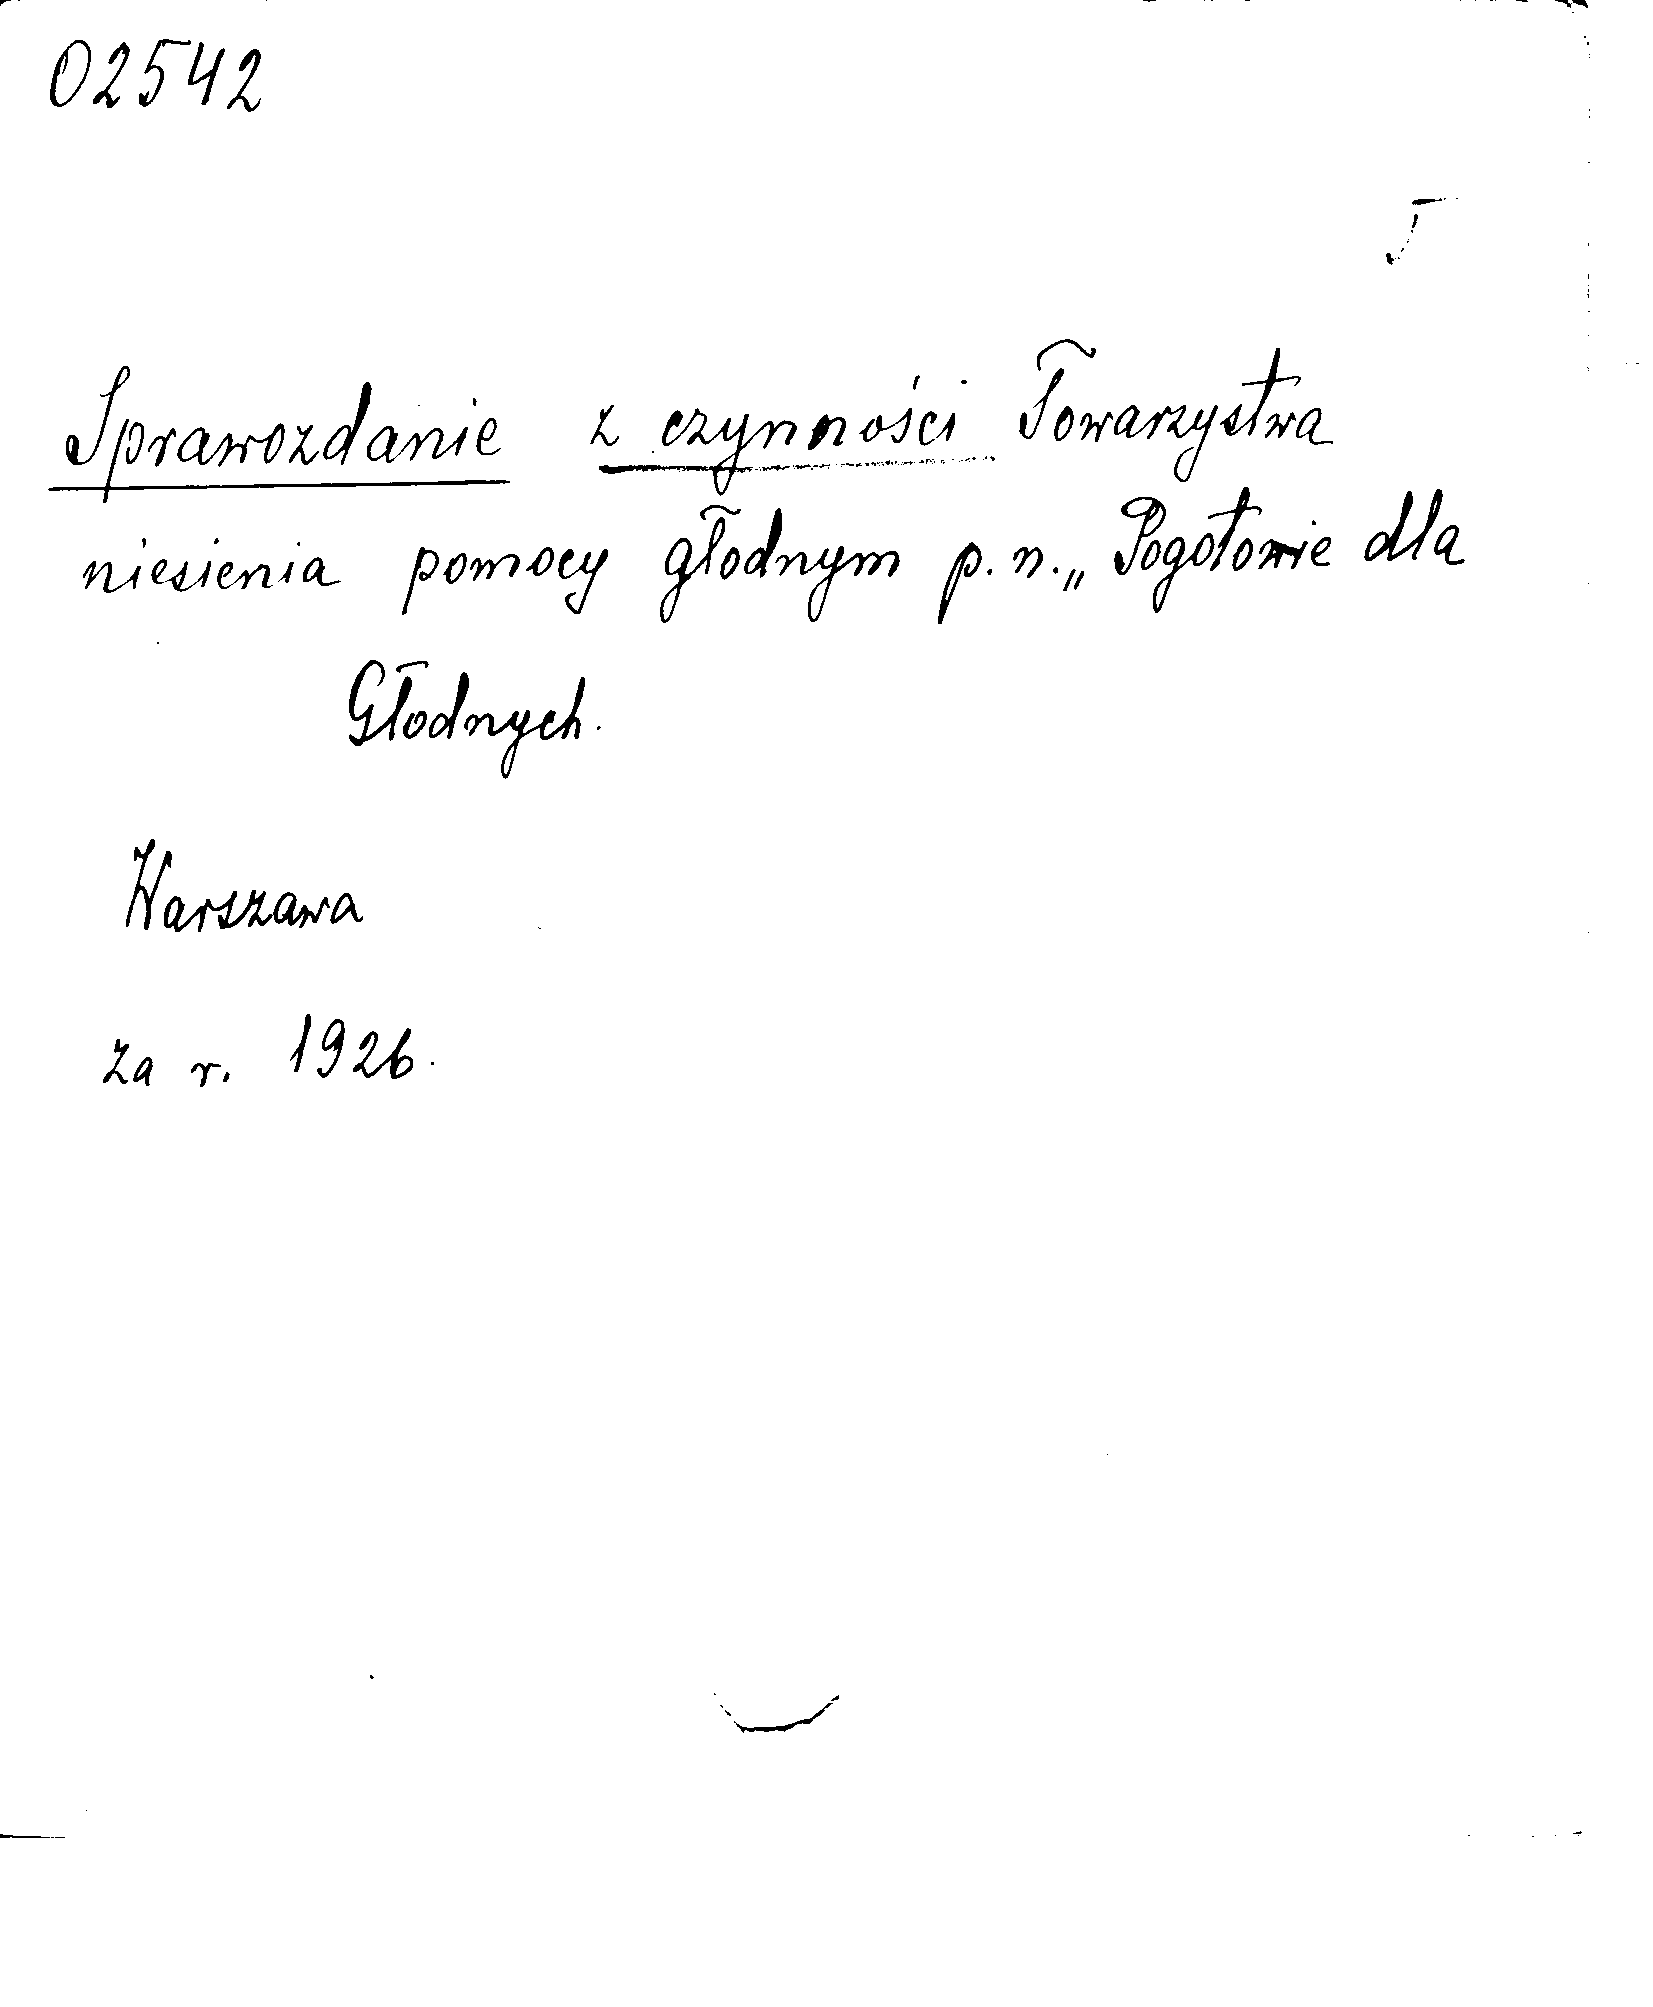 02542
Sprawozdanie z czynności Towarzystwa
niesienia pomocy głodnym p. n. „Pogotowie dla
Głodnych.
Warszawa
za r. 1926.